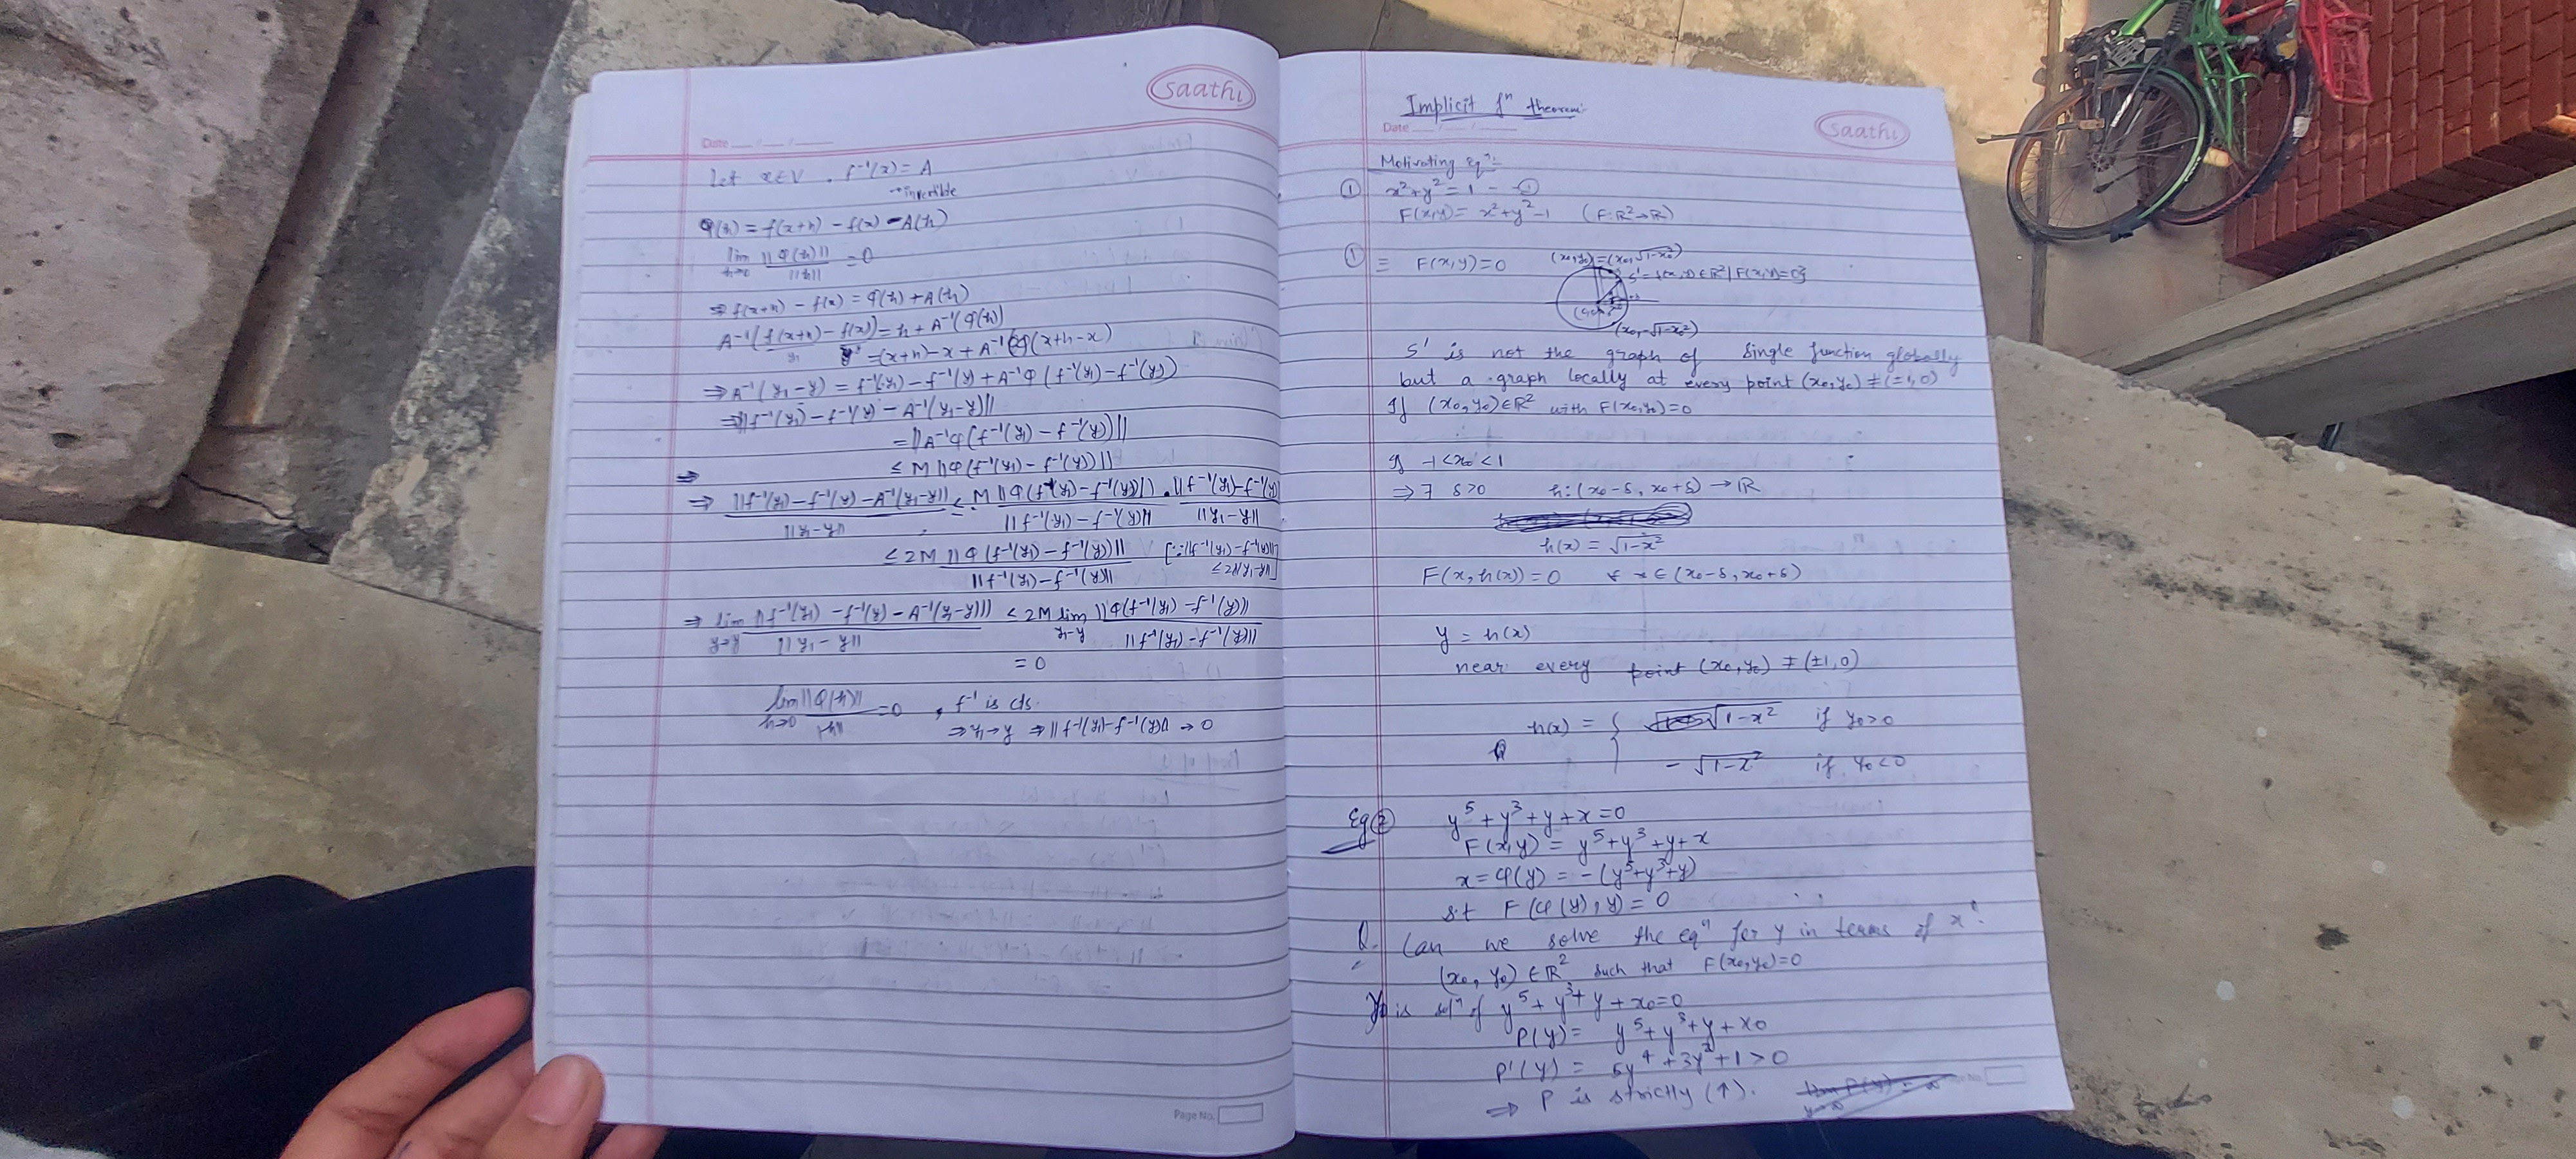 Saathi
Date __/__/____
Let x∈V, f⁻¹(x) = A
→ invertible
φ(h) = f(x+h) - f(x) - A(h)
lim h→0 ||φ(h)|| / ||h|| = 0
⇒ f(x+h) - f(x) = φ(h) + A(h)
A⁻¹(f(x+h) - f(x)) = h + A⁻¹(φ(h))
= (x+h) - x + A⁻¹φ(x+h-x)
⇒ A⁻¹(y₁-y) = f⁻¹(y₁) - f⁻¹(y) + A⁻¹φ(f⁻¹(y₁) - f⁻¹(y))
⇒ ||f⁻¹(y₁) - f⁻¹(y) - A⁻¹(y₁-y)||
= ||A⁻¹φ(f⁻¹(y₁) - f⁻¹(y))||
≤ M ||φ(f⁻¹(y₁) - f⁻¹(y))||
⇒
⇒ ||f⁻¹(y₁) - f⁻¹(y) - A⁻¹(y₁-y)|| / ||y₁-y|| ≤ M ||φ(f⁻¹(y₁) - f⁻¹(y))|| / ||f⁻¹(y₁) - f⁻¹(y)|| · ||f⁻¹(y₁) - f⁻¹(y)|| / ||y₁-y||
≤ 2M ||φ(f⁻¹(y₁) - f⁻¹(y))|| / ||f⁻¹(y₁) - f⁻¹(y)||
⇒ lim ||f⁻¹(y₁) - f⁻¹(y) - A⁻¹(y₁-y)|| / ||y₁-y|| ≤ 2M lim ||φ(f⁻¹(y₁) - f⁻¹(y))|| / ||f⁻¹(y₁) - f⁻¹(y)||
= 0
lim h→0 ||φ(h)|| / ||h|| = 0, f⁻¹ is cts.
⇒ y₁→y ⇒ ||f⁻¹(y₁) - f⁻¹(y)|| → 0
Page No.
Implicit fⁿ theorem:
Date __/__/____
Saathi
Motivating eqⁿ:
① x²+y² = 1 - ①
F(x,y) = x²+y²-1 (F:ℝ²→ℝ)
① ≡ F(x,y) = 0
(x₀,y₀) = (x₀,√1-x₀²)
S' = {(x,y)∈ℝ² | F(x,y)=0}
(x₀,-√1-x₀²)
S' is not the graph of single function globally
but a graph locally at every point (x₀,y₀) ≠ (±1,0)
If (x₀,y₀)∈ℝ² with F(x₀,y₀)=0
If -1<x₀<1
⇒ ∃ δ>0 h:(x₀-δ, x₀+δ)→ℝ
h(x) = √1-x²
F(x,h(x)) = 0 ∀ x∈(x₀-δ, x₀+δ)
y = h(x)
near every point (x₀,y₀) ≠ (±1,0)
h(x) = { √1-x² if y₀>0
-√1-x² if y₀<0
Eg ② y⁵+y³+y+x=0
F(x,y) = y⁵+y³+y+x
x = φ(y) = -(y⁵+y³+y)
s.t F(φ(y),y) = 0
Q. Can we solve the eqⁿ for y in terms of x?
(x₀,y₀)∈ℝ² such that F(x₀,y₀)=0
y₀ is solⁿ of y⁵+y³+y+x₀=0
P(y) = y⁵+y³+y+x₀
P'(y) = 5y⁴+3y²+1>0
⇒ P is strictly (↑).